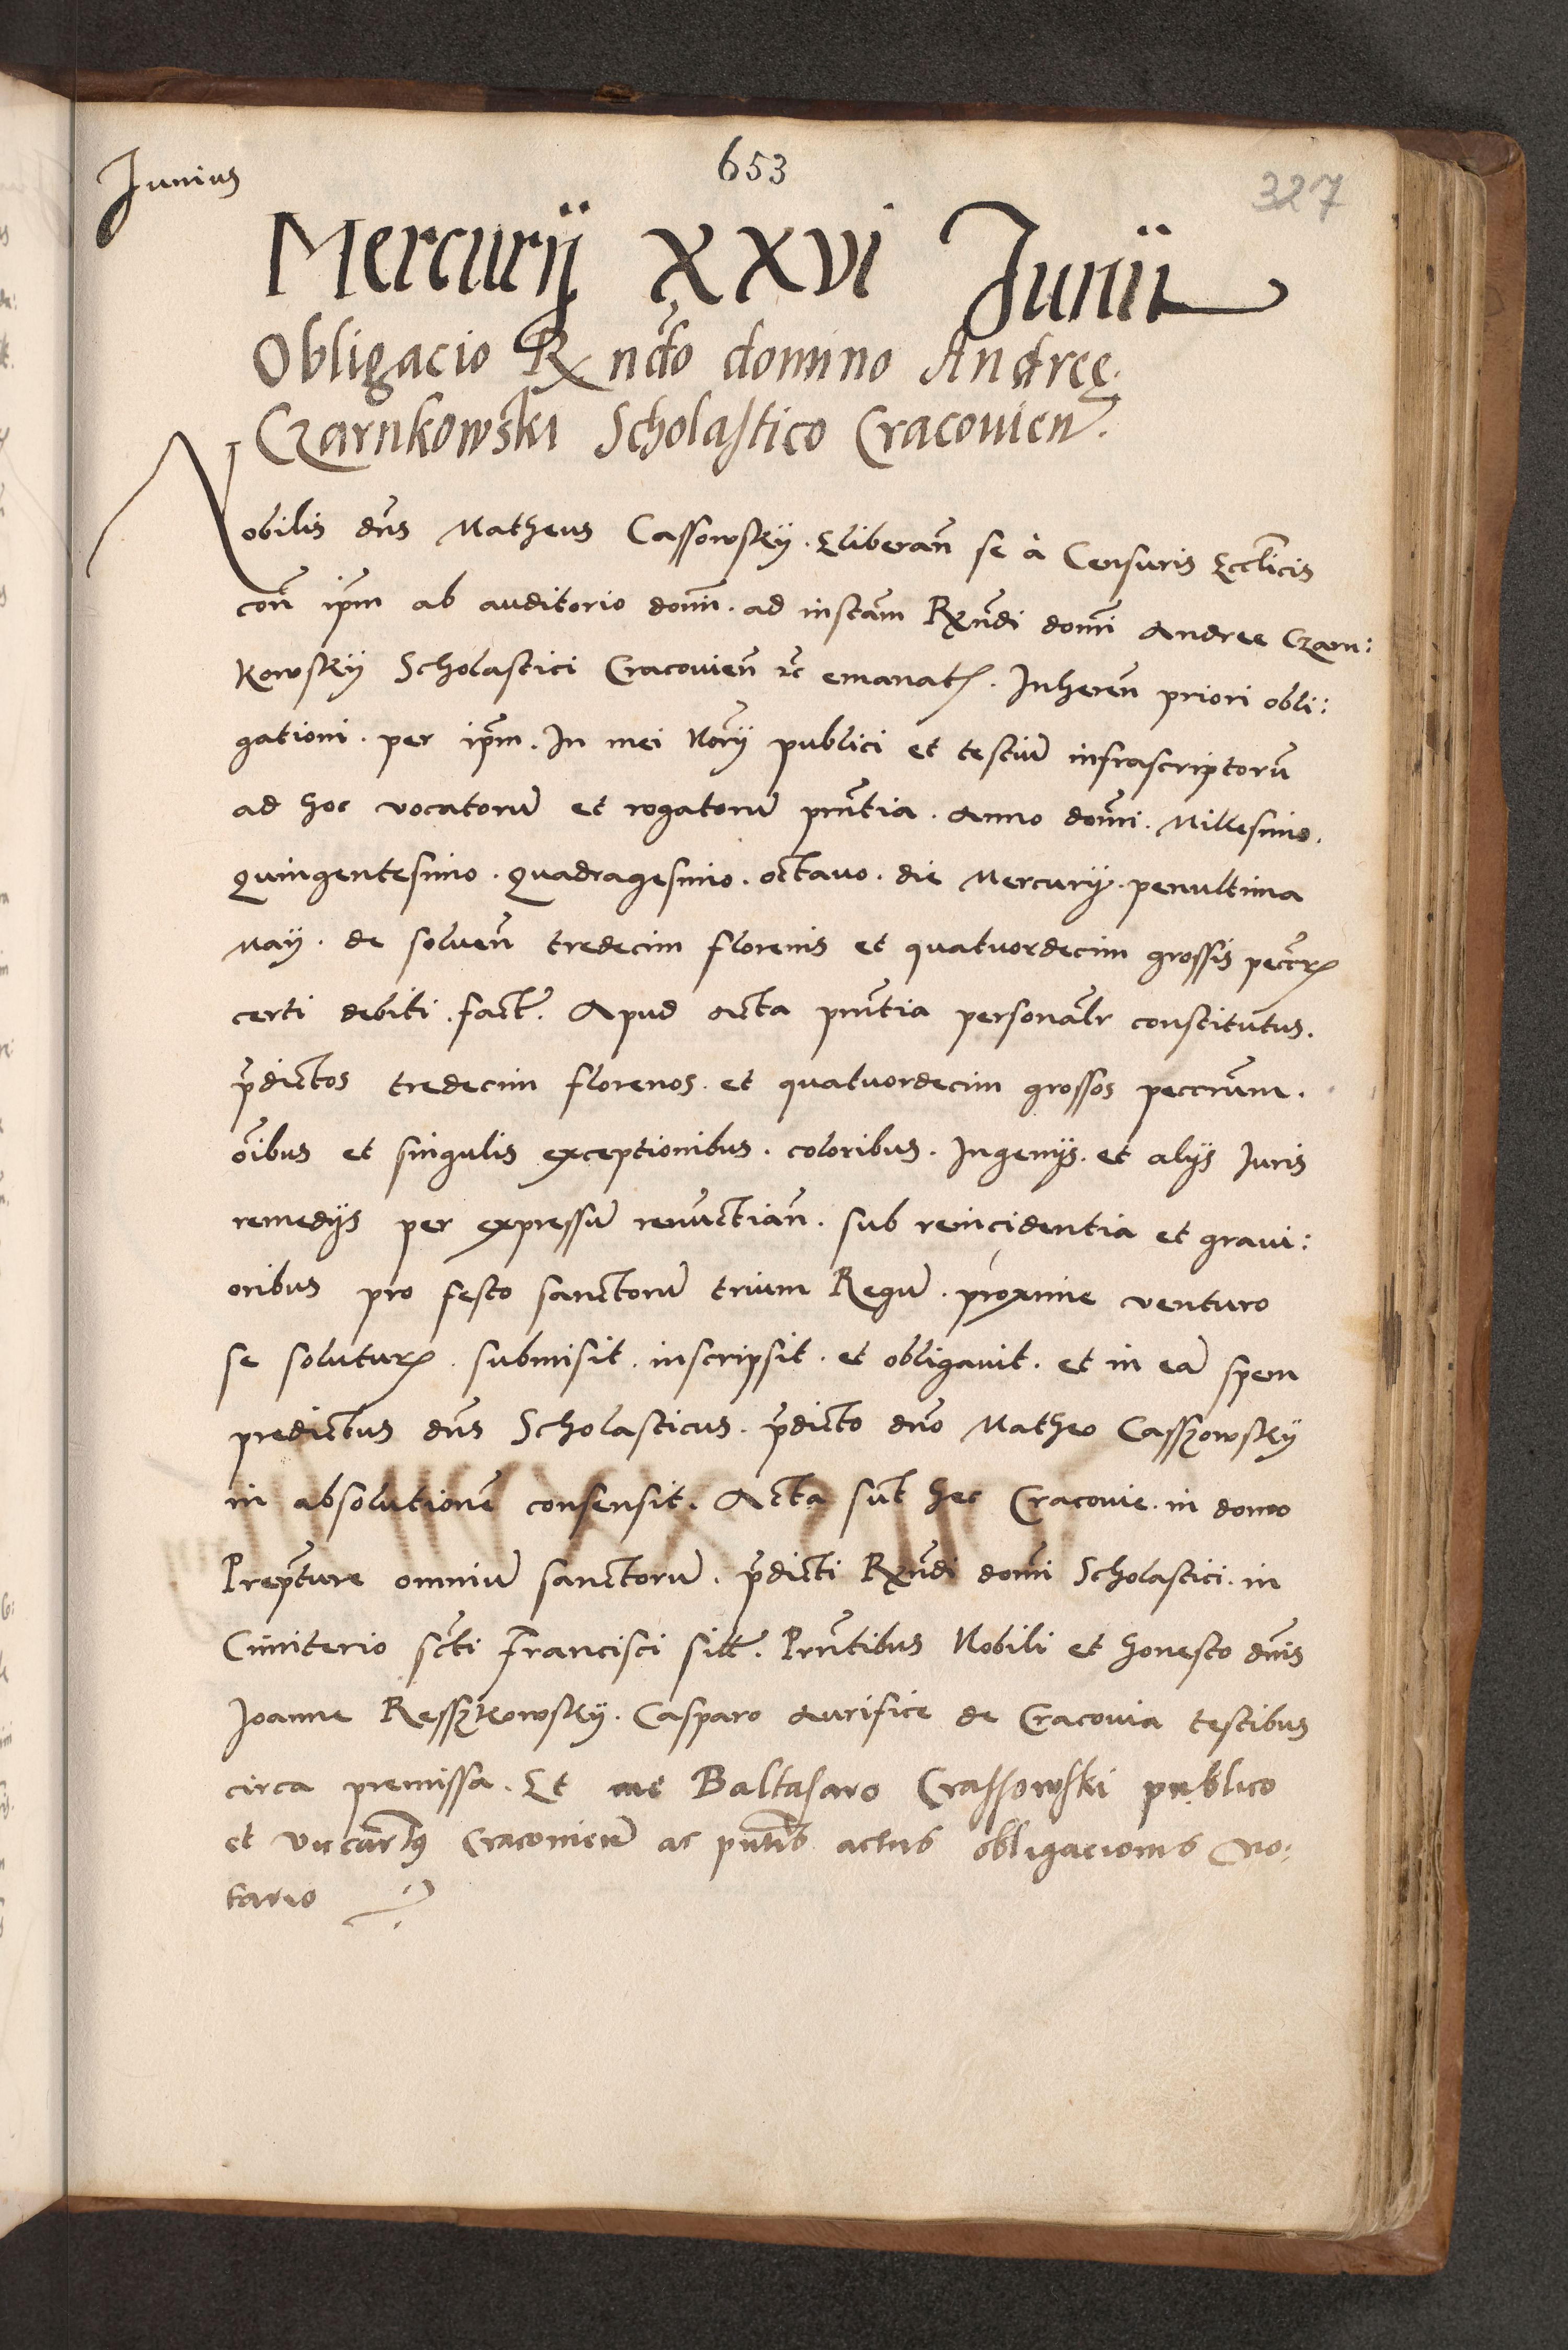 Junius
653
327
Mercurij XXVI Junii
Obligacio Rndo domino Andreę
Czarnkowski Scholastico Cracovien̄.
Nobilis dn̄s Matheus Cassowskÿ. Eliberan̄ se à Censuris Ecclīcis
con̄ ip̄m ab auditorio domi̅n. ad instam̄ Rn̄di domī Andree Czarn:
kowskÿ Scholastici Cracovien̄ &c̄ emanatꝭ. Inheren̄ priori obli:
gationi. per ip̄m. In mei Nōrij publici et testiū infrascriptorū
ad hoc vocatorū et rogatorū pn̄tia. Anno domī. Millesimo.
Quingentesimo. Quadragesimo. octavo. die Mercurij. penultima
Maÿ. de soluen̄ tredecim florenis et quatuordecim grossis pecc̄rꝭ
certi debiti. fact̄. Apud acta pn̄tia personal̄r constitutus.
p̄dictos tredecim florenos. et quatuordecim grossos peccn̄iarum.
oībus et singulis exceptionibus. coloribus. Ingenijs. et alijs Iuris
remedijs per expressū renūctian̄. sub reincidentia et gravi:
oribus pro festo sanctorū trium Regū. proxime venturo
se soluturꝭ. submisit. inscripsit. et obligavit. et in eā spem
predictus dn̄s Scholasticus. p̄dicto dn̄o Matheo Casszowskÿ
in absolutionē consensit. Acta sūt hec Cracovie. in domo
Prep̄ture omniū sanctorū. p̄dicti Rn̄di domī Scholastici. in
Cimiterio sc̄ti Francisci sitt̄. Prn̄tibus Nobili et honesto dn̄is
Joanne Resszkowskÿ. Casparo Aurifice de Cracovia testibus
circa premissa. Et me Baltasaro Crassowski publico
et vicear̄ꝰ Cracovien̄ ac pn̄tis actus obligacionis No:
tario